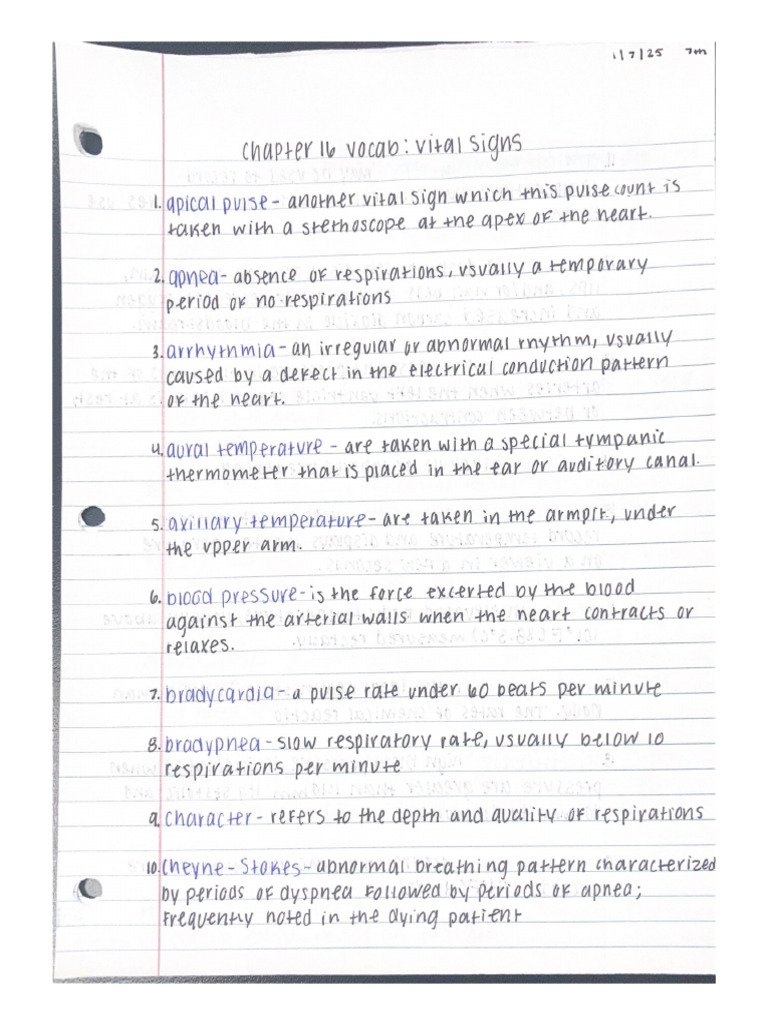 1/7/25 7m
Chapter 16 vocab: vital signs
1. apical pulse - another vital sign which this pulse count is
taken with a stethoscope at the apex of the heart.
2. apnea - absence of respirations, usually a temporary
period of no respirations
3. arrhythmia - an irregular or abnormal rhythm, usually
caused by a defect in the electrical conduction pattern
of the heart.
4. aural temperature - are taken with a special tympanic
thermometer that is placed in the ear or auditory canal.
5. axillary temperature - are taken in the armpit, under
the upper arm.
6. blood pressure - is the force excerted by the blood
against the arterial walls when the heart contracts or
relaxes.
7. bradycardia - a pulse rate under 60 beats per minute
8. bradypnea - slow respiratory rate, usually below 10
respirations per minute
9. character - refers to the depth and quality of respirations
10. Cheyne-Stokes - abnormal breathing pattern characterized
by periods of dyspnea followed by periods of apnea;
frequently noted in the dying patient